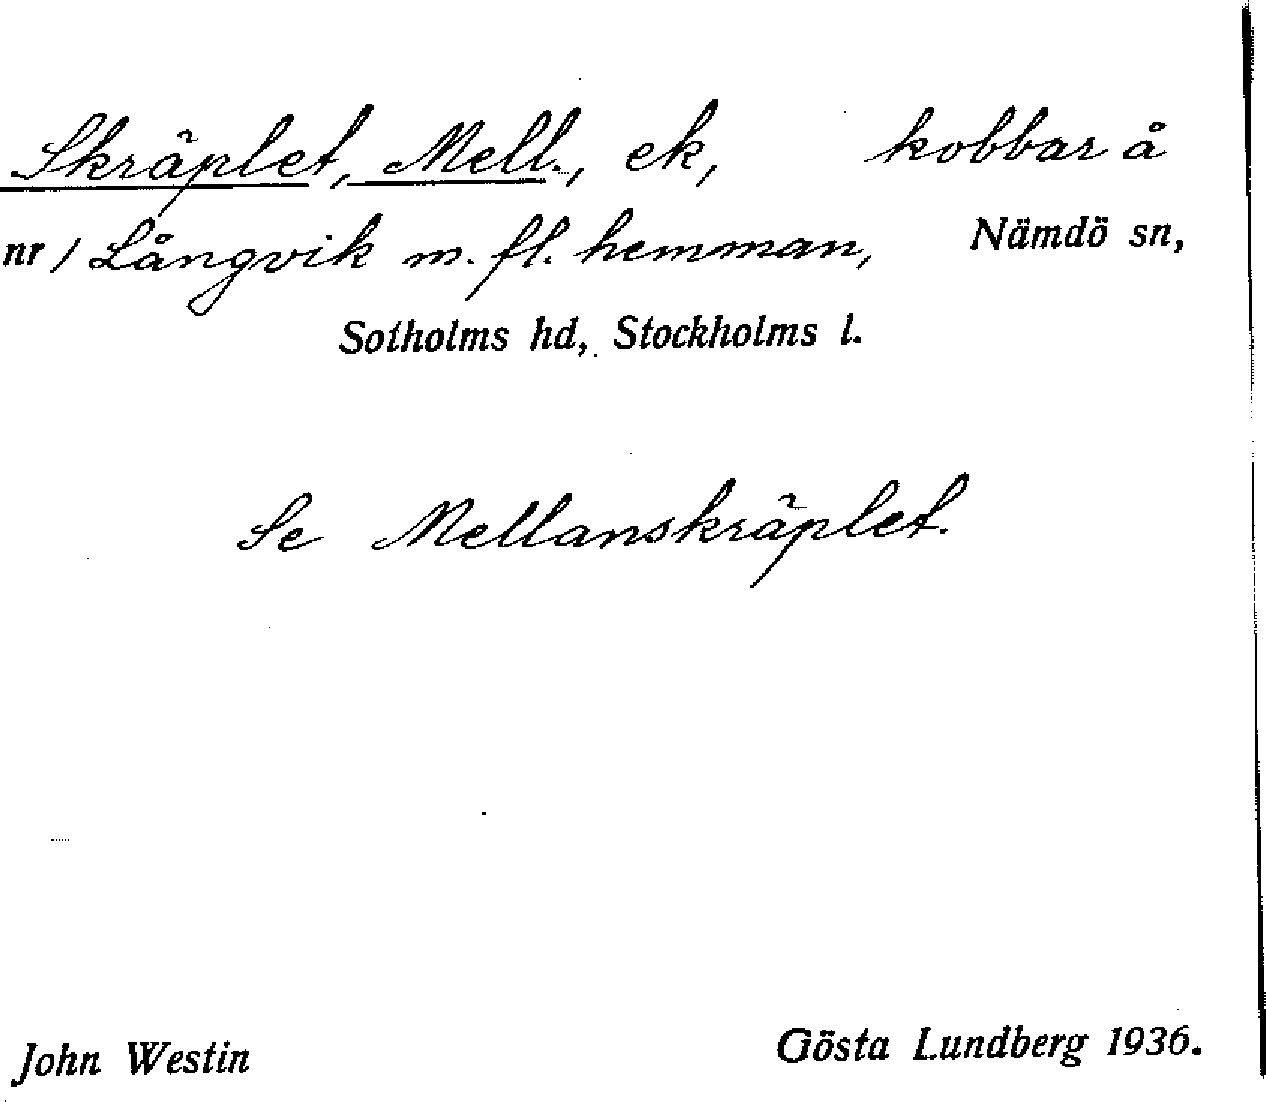 Skräplet, Mell., ek, kobbar å
nr 1 Långvik m. fl. hemman, Nämdö sn,
Sotholms hd, Stockholms l.
Se Mellanskräplet.
John Westin Gösta Lundberg 1936.